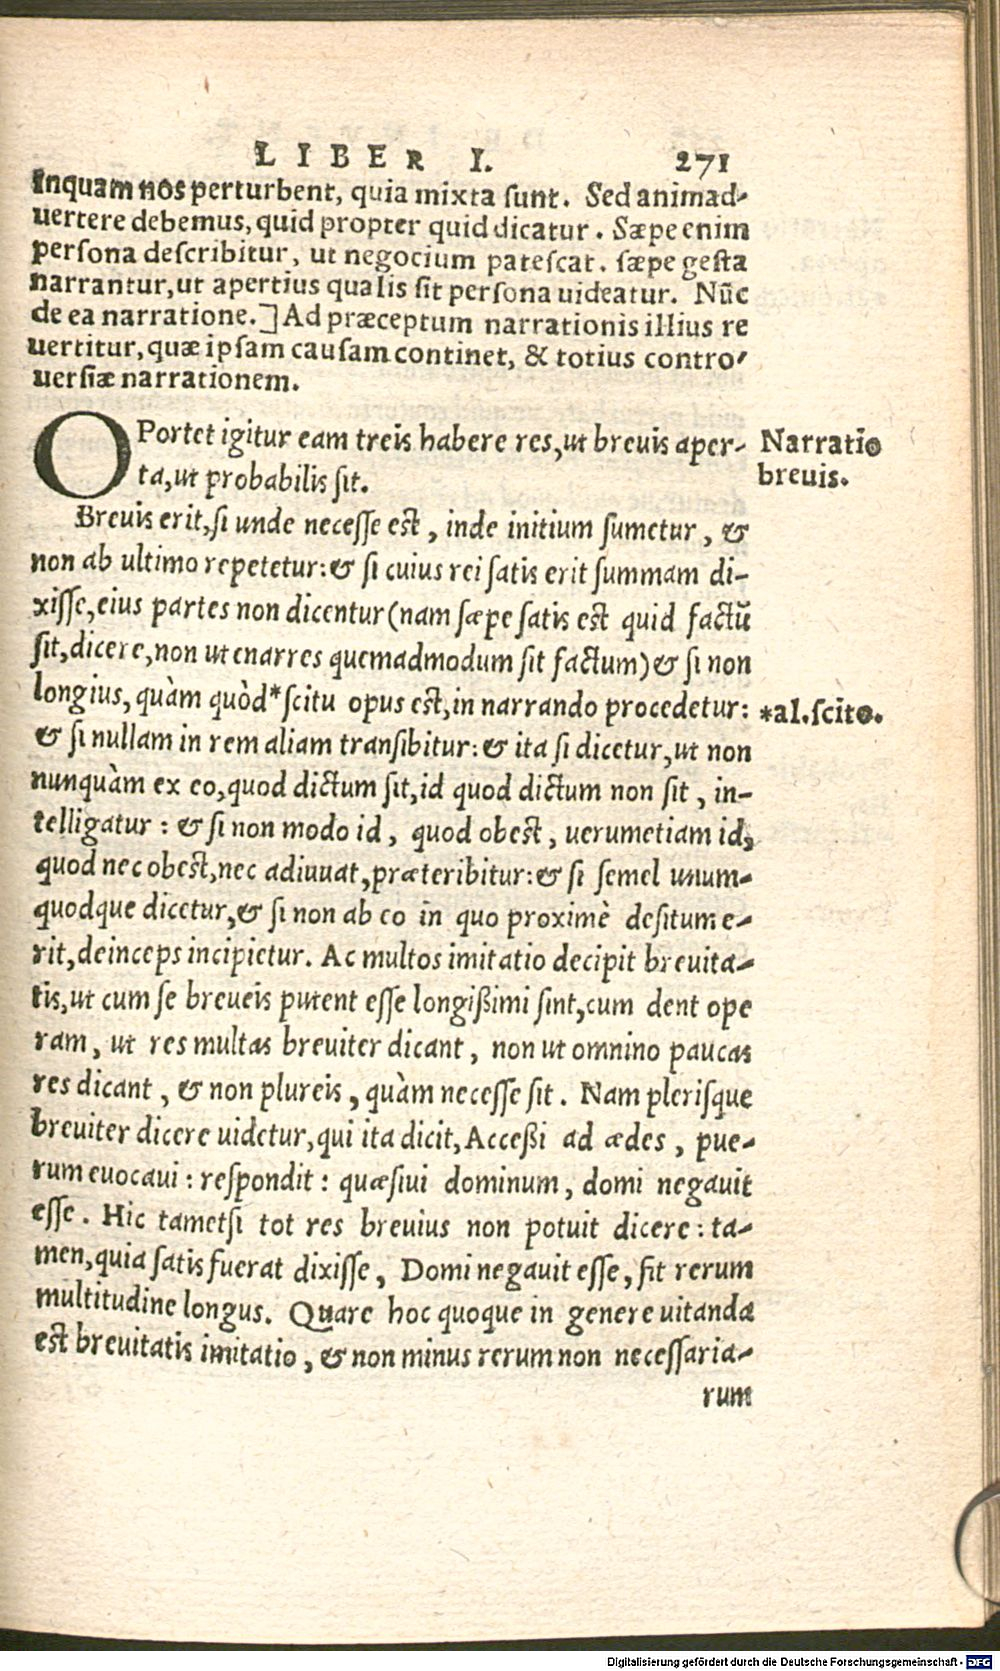 LIBER I. 271
inquam nos perturbent, quia mixta sunt. Sed animad-
uertere debemus, quid propter quid dicatur. Sæpe enim
persona describitur, ut negocium patescat. sæpe gesta
narrantur, ut apertius qualis sit persona uideatur. Nũc
de ea narratione.] Ad præceptum narrationis illius re
uertitur, quæ ipsam causam continet, & totius contro-
uersiæ narrationem.
OPortet igitur eam treis habere res, ut brevis aper-
ta, ut probabilis sit.
Narratio
brevis.
Brevis erit, si unde necesse est, inde initium sumetur, &
non ab ultimo repetetur: & si cuius rei satis erit summam di-
xisse, eius partes non dicentur (nam sæpe satis est quid factũ
sit, dicere, non ut enarres quemadmodum sit factum) & si non
longius, quàm quòd* scitu opus est, in narrando procedetur:
*al. scito.
& si nullam in rem aliam transibitur: & ita si dicetur, ut non
nunquàm ex eo, quod dictum sit, id quod dictum non sit, in-
telligatur: & si non modo id, quod obest, uerumetiam id,
quod nec obest, nec adiuvat, præteribitur: & si semel unum-
quodque dicetur, & si non ab eo in quo proximè desitum e-
rit, deinceps incipietur. Ac multos imitatio decipit brevita-
tis, ut cum se breveis putent esse longißimi sint, cum dent ope
ram, ut res multas breviter dicant, non ut omnino paucas
res dicant, & non plureis, quàm necesse sit. Nam plerisque
breviter dicere uidetur, qui ita dicit, Acceßi ad ædes, pue-
rum evocavi: respondit: quæsivi dominum, domi negavit
esse. Hic tametsi tot res brevius non potuit dicere: ta-
men, quia satis fuerat dixisse, Domi negavit esse, fit rerum
multitudine longus. Quare hoc quoque in genere uitanda
est brevitatis imitatio, & non minus rerum non necessaria-
rum
Digitalisierung gefördert durch die Deutsche Forschungsgemeinschaft - DFG